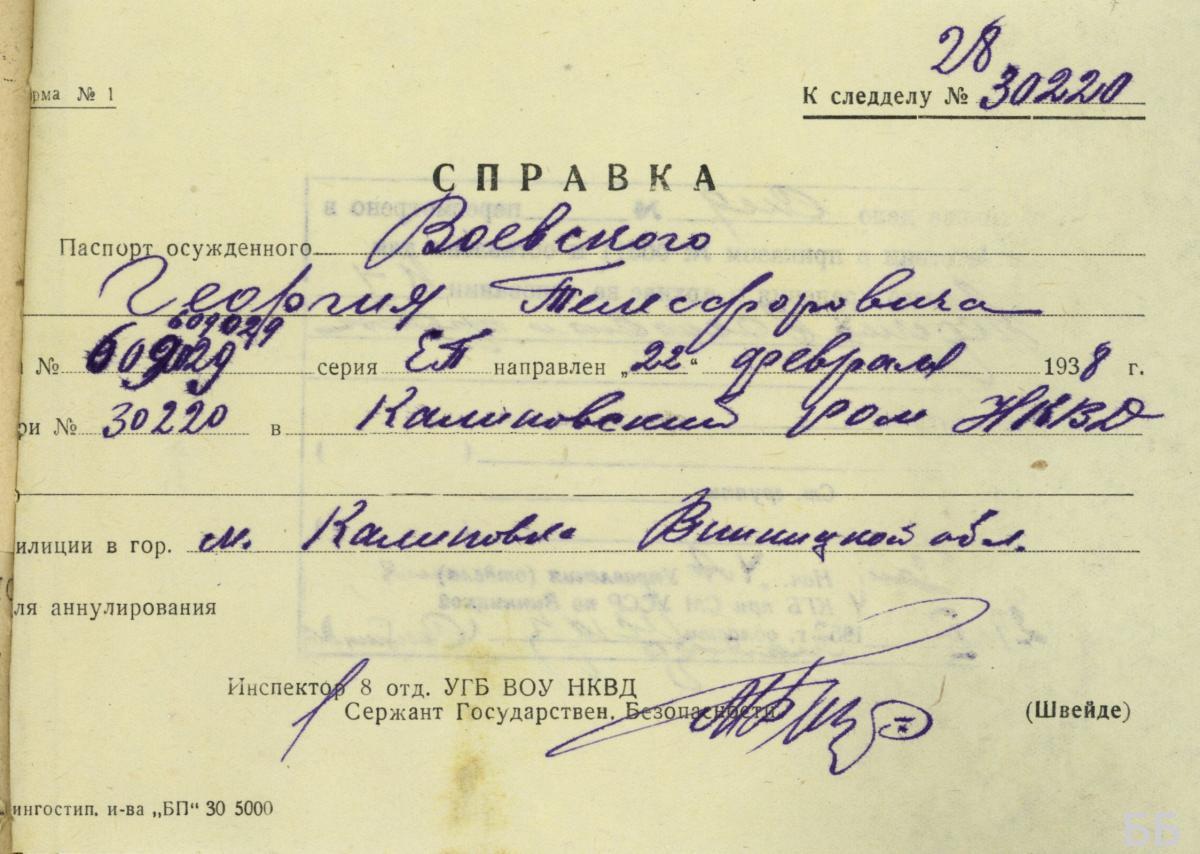 28
орма № 1
К следделу № 30220
СПРАВКА
Паспорт осужденного Воевского
Георгия Телесфоровича
609029
№ 609029 серия ЕП направлен „22“ февраля 1938 г.
ри № 30220 в Калиновский ром НКВД
илиции в гор. м. Калиновка Винницкой обл.
ля аннулирования
Инспектор 8 отд. УГБ ВОУ НКВД
Сержант Государствен. Безопасности
(Швейде)
ингостип. и-ва „БП“ 30 5000
ББ